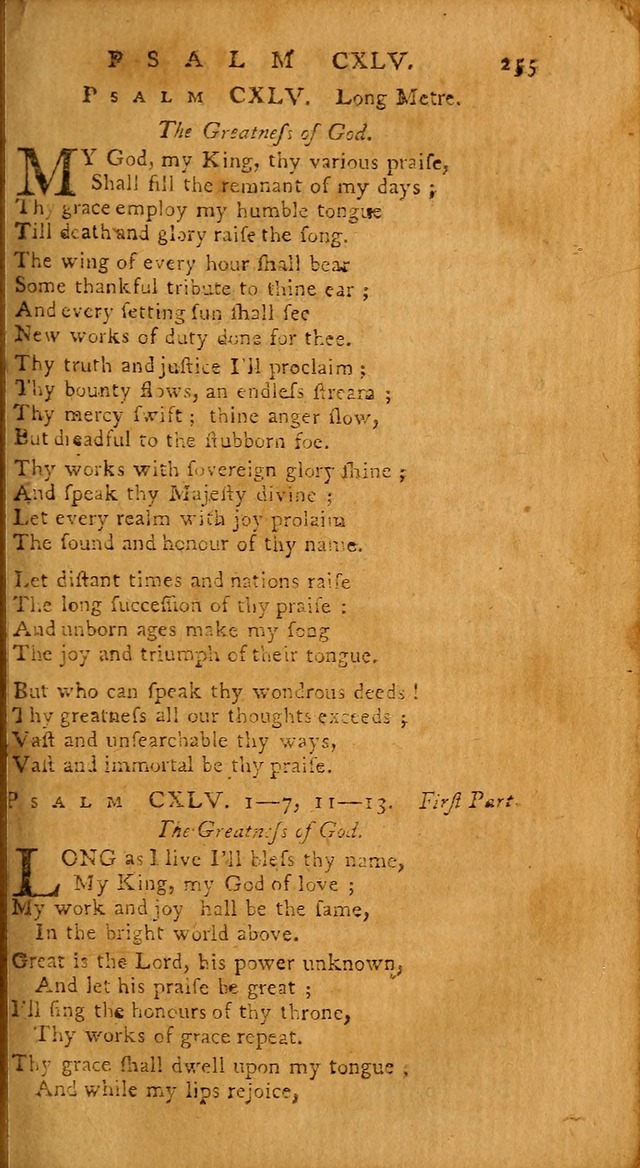 PSALM CXLV. 255
PSALM CXLV. Long Metre.
The Greatneſs of God.
MY God, my King, thy various praiſe,
Shall fill the remnant of my days ;
Thy grace employ my humble tongue
Till death and glory raiſe the ſong.
The wing of every hour ſhall bear
Some thankful tribute to thine ear ;
And every ſetting ſun ſhall ſee
New works of duty done for thee.
Thy truth and juſtice I'll proclaim ;
Thy bounty flows, an endleſs ſtream ;
Thy mercy ſwift ; thine anger ſlow,
But dreadful to the ſtubborn foe.
Thy works with ſovereign glory ſhine ;
And ſpeak thy Majeſty divine ;
Let every realm with joy prolaim
The ſound and honour of thy name.
Let diſtant times and nations raiſe
The long ſucceſſion of thy praiſe :
And unborn ages make my ſong
The joy and triumph of their tongue.
But who can ſpeak thy wondrous deeds !
Thy greatneſs all our thoughts exceeds ;
Vaſt and unſearchable thy ways,
Vaſt and immortal be thy praiſe.
PSALM CXLV. 1—7, 11—13. Firſt Part.
The Greatneſs of God.
LONG as I live I'll bleſs thy name,
My King, my God of love ;
My work and joy hall be the ſame,
In the bright world above.
Great is the Lord, his power unknown,
And let his praiſe be great ;
I'll ſing the honours of thy throne,
Thy works of grace repeat.
Thy grace ſhall dwell upon my tongue ;
And while my lips rejoice,